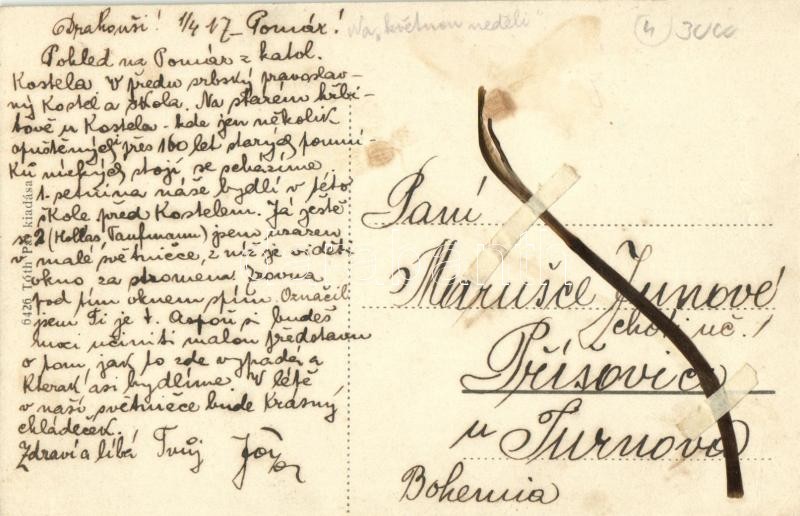 Drahouši! 1/4 17 - Pomáz!
Na „květnou neděli"
4 3000
Pohled na Pomáz z katol.
Kostela. V předu srbský pravoslav-
ný Kostel a škola. Na starém hřbi-
tově u Kostela - kde jen několik
opuštěných přes 160 let starých pomní-
ků němých stojí, se scházíme
1. setnina naše bydlí v této
škole před Kostelem. Já ještě
se 2 (Kollas, Taufmann) jsem
v malé světničce, z níž je viděti
okno za stromem. Zrovna
pod tím oknem spím. Označil
jsem Ti je †. Aspoň si budeš
moci učiniti malou představu
o tom, jak to zde vypadá a
kterak asi bydlíme. V létě
v naší světničce bude Krásný
chládeček.
Zdraví a líbá Tvůj
6426 Tóth kiadása
Paní
Marušce Junové
choti uč.!
Příšovice
u Turnova
Bohemia